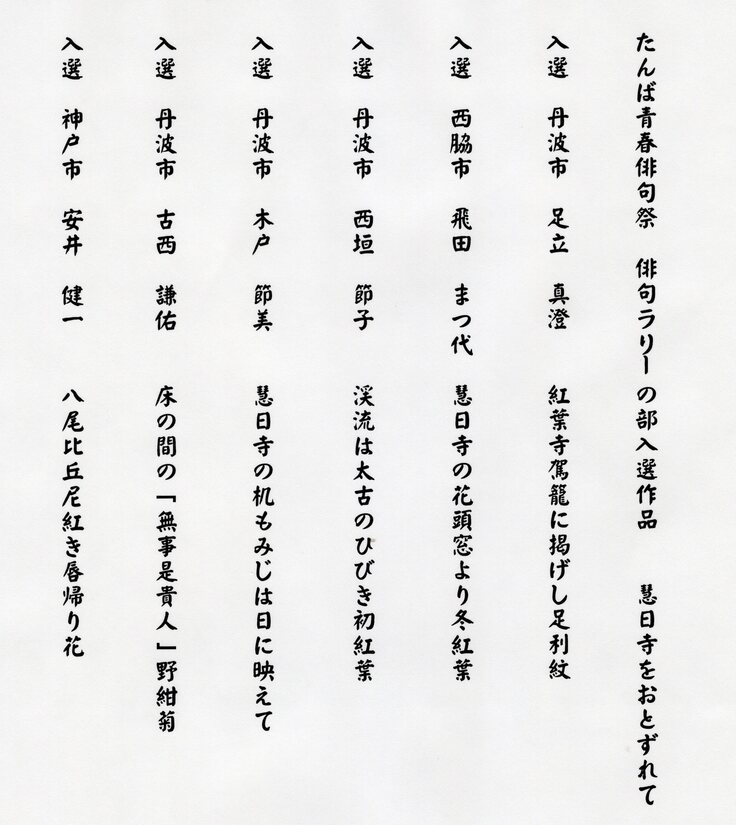 たんば青春俳句祭 俳句ラリーの部入選作品 慧日寺をおとずれて
入選 丹波市 足立 真澄 紅葉寺駕籠に掲げし足利紋
入選 西脇市 飛田 まつ代 慧日寺の花頭窓より冬紅葉
入選 丹波市 西垣 節子 渓流は太古のひびき初紅葉
入選 丹波市 木戸 節美 慧日寺の机もみじは日に映えて
入選 丹波市 古西 謙佑 床の間の「無事是貴人」野紺菊
入選 神戸市 安井 健一 八尾比丘尼紅き唇帰り花